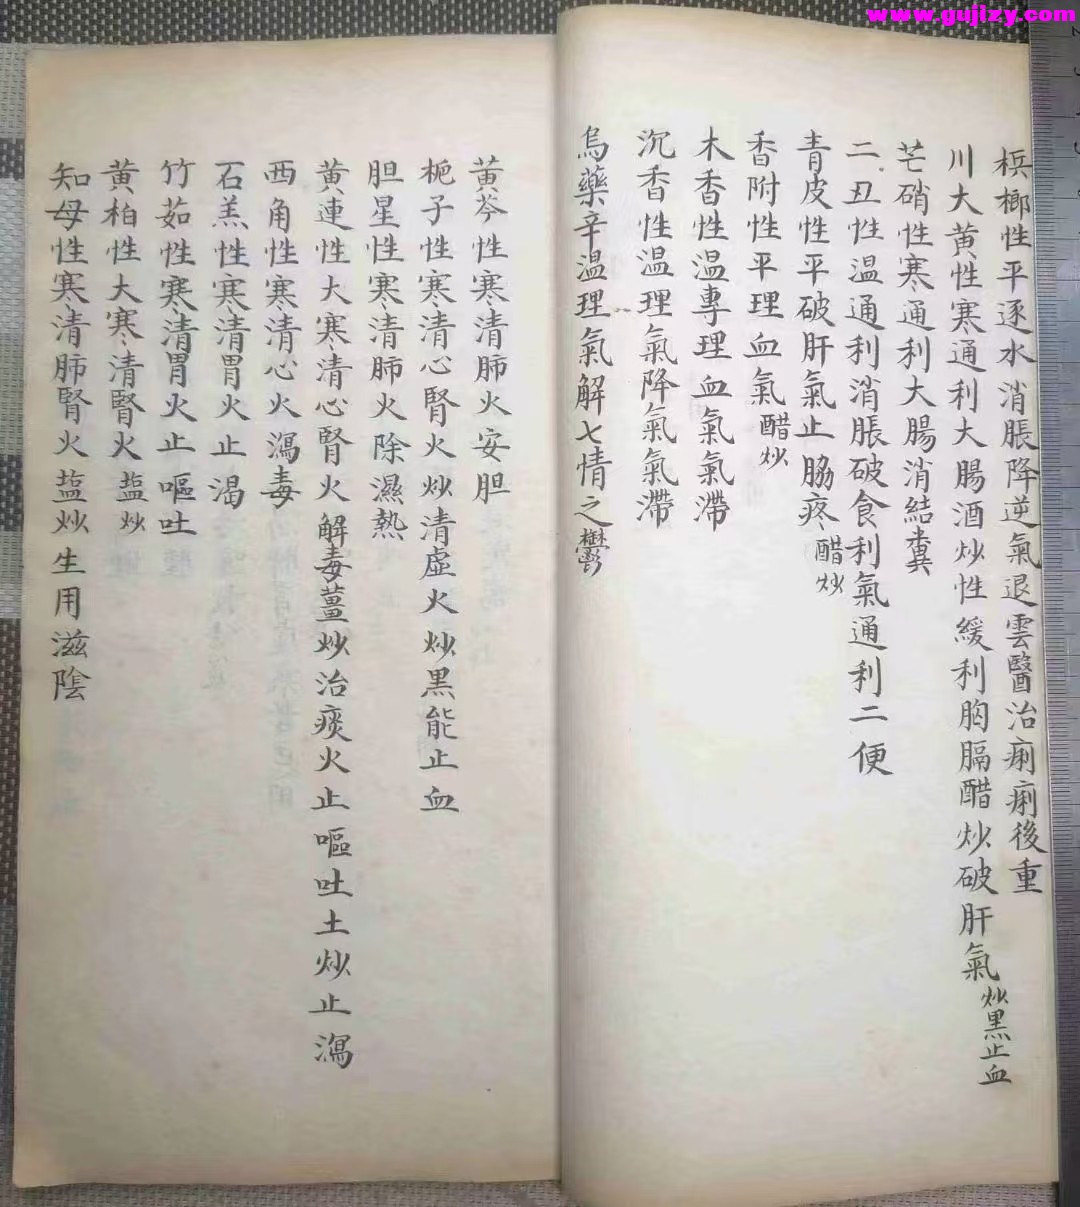 www.gujizy.com
梹榔性平逐水消脹降逆氣退雲醫治痢痢後重
川大黄性寒通利大腸酒炒性緩利胸膈醋炒破肝氣炒黑止血
芒硝性寒通利大腸消結糞
二丑性温通利消脹破食利氣通利二便
青皮性平破肝氣止脇疼醋炒
香附性平理血氣醋炒
木香性温專理血氣氣滯
沉香性温理氣降氣氣滯
烏藥辛温理氣解七情之鬱
黄芩性寒清肺火安胆
栀子性寒清心腎火炒清虛火炒黑能止血
胆星性寒清肺火除濕熱
黄連性大寒清心腎火解毒薑炒治痰火止嘔吐土炒止瀉
西角性寒清心火瀉毒
石羔性寒清胃火止渴
竹茹性寒清胃火止嘔吐
黄柏性大寒清腎火塩炒
知母性寒清肺腎火塩炒生用滋陰